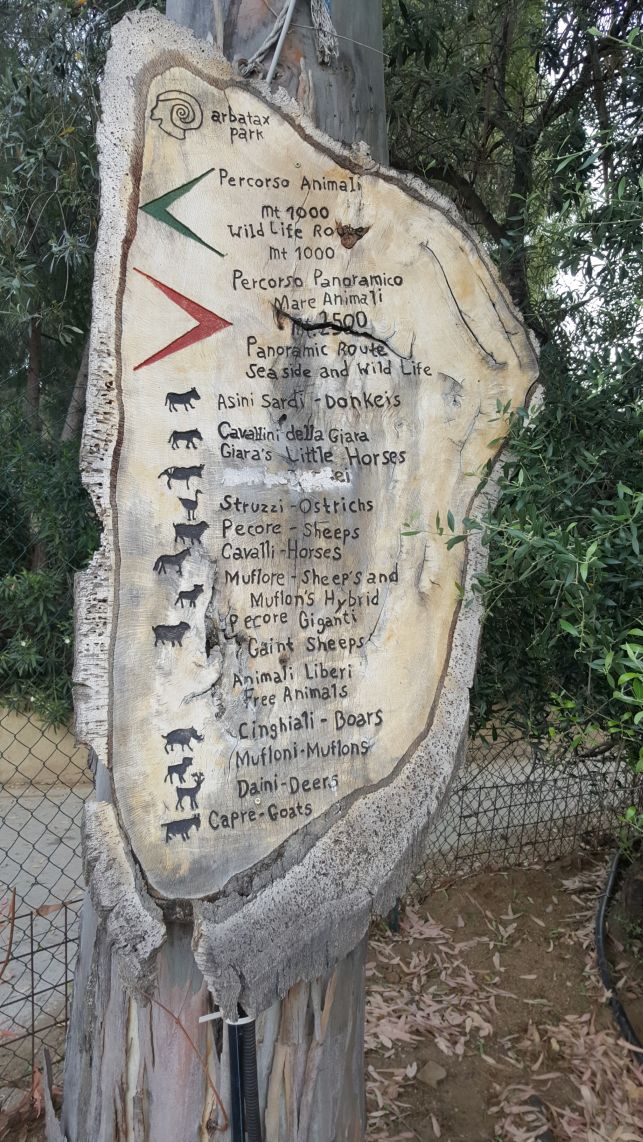 arbatax
park
Percorso Animali
Mt 1000
Wild Life Route
mt 1000
Percorso Panoramico
Mare Animali
Mt. 2500
Panoramic Route
Sea side and Wild Life
Asini Sardi - Donkeis
Cavallini della Giara
Giara's Little Horses
ei
Struzzi - Ostrichs
Pecore - Sheeps
Cavalli - Horses
Muflore - Sheep's and
Muflon's Hybrid
Pecore Giganti
Gaint Sheeps
Animali Liberi
Free Animals
Cinghiali - Boars
Mufloni - Muflons
Daini - Deers
Capre - Goats